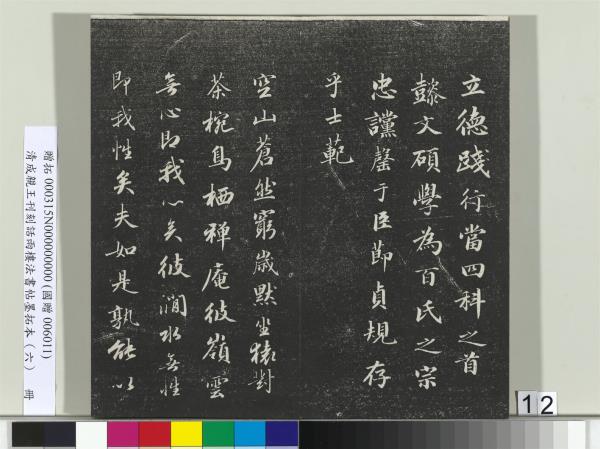 立德踐行當四科之首
懿文碩學為百氏之宗
忠讜罄于臣節貞規存
乎士範
空山蒼然窮歲默坐猿對
茶椀鳥栖禪庵彼嶺雲
無心即我心矣彼澗水無性
即我性矣夫如是孰能以
贈拓000315N000000000 (國贈006011)
清成親王刊刻詒晉樓法書帖墨拓本（六） 冊
12